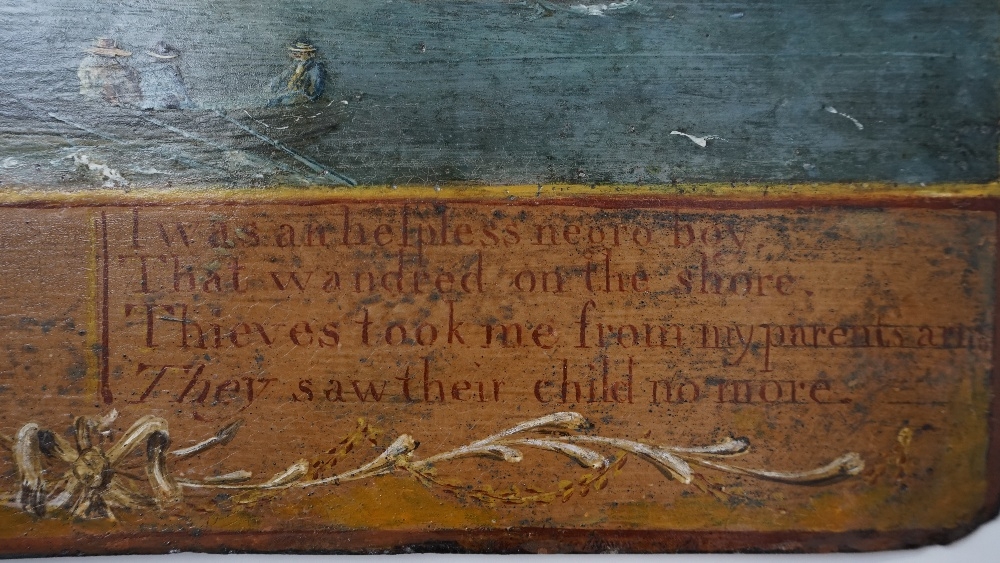 I was an helpless negro boy,
That wandred on the shore,
Thieves took me from my parents arm
They saw their child no more.